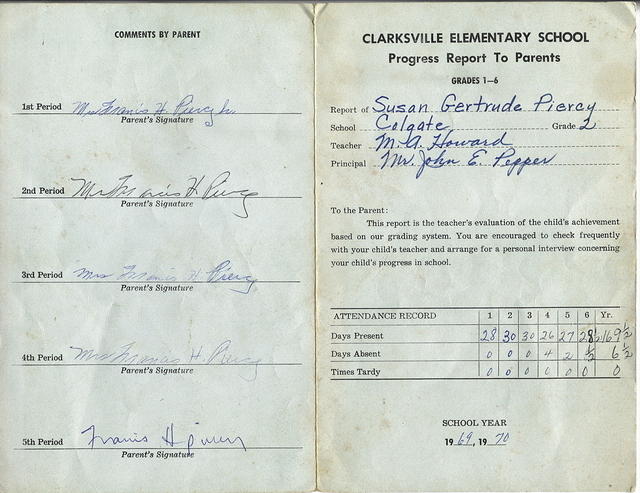 COMMENTS BY PARENT
1st Period Mrs Francis H. Piercy Jr.
Parent's Signature
2nd Period Mrs Francis H. Piercy
Parent's Signature
3rd Period Mrs Francis H. Piercy
Parent's Signature
4th Period Mrs Francis H. Piercy
Parent's Signature
5th Period Francis H Piercy
Parent's Signature
CLARKSVILLE ELEMENTARY SCHOOL
Progress Report To Parents
GRADES 1-6
Report of Susan Gertrude Piercy
School Colgate Grade 2
Teacher M. A. Howard
Principal Mr. John E. Pepper
To the Parent:
This report is the teacher's evaluation of the child's achievement
based on our grading system. You are encouraged to check frequently
with your child's teacher and arrange for a personal interview concerning
your child's progress in school.
ATTENDANCE RECORD 1 2 3 4 5 6 Yr.
Days Present 28 30 30 26 27 28½ 169½
Days Absent 0 0 0 4 2 ½ 6½
Times Tardy 0 0 0 0 0 0 0
SCHOOL YEAR
1969, 1970